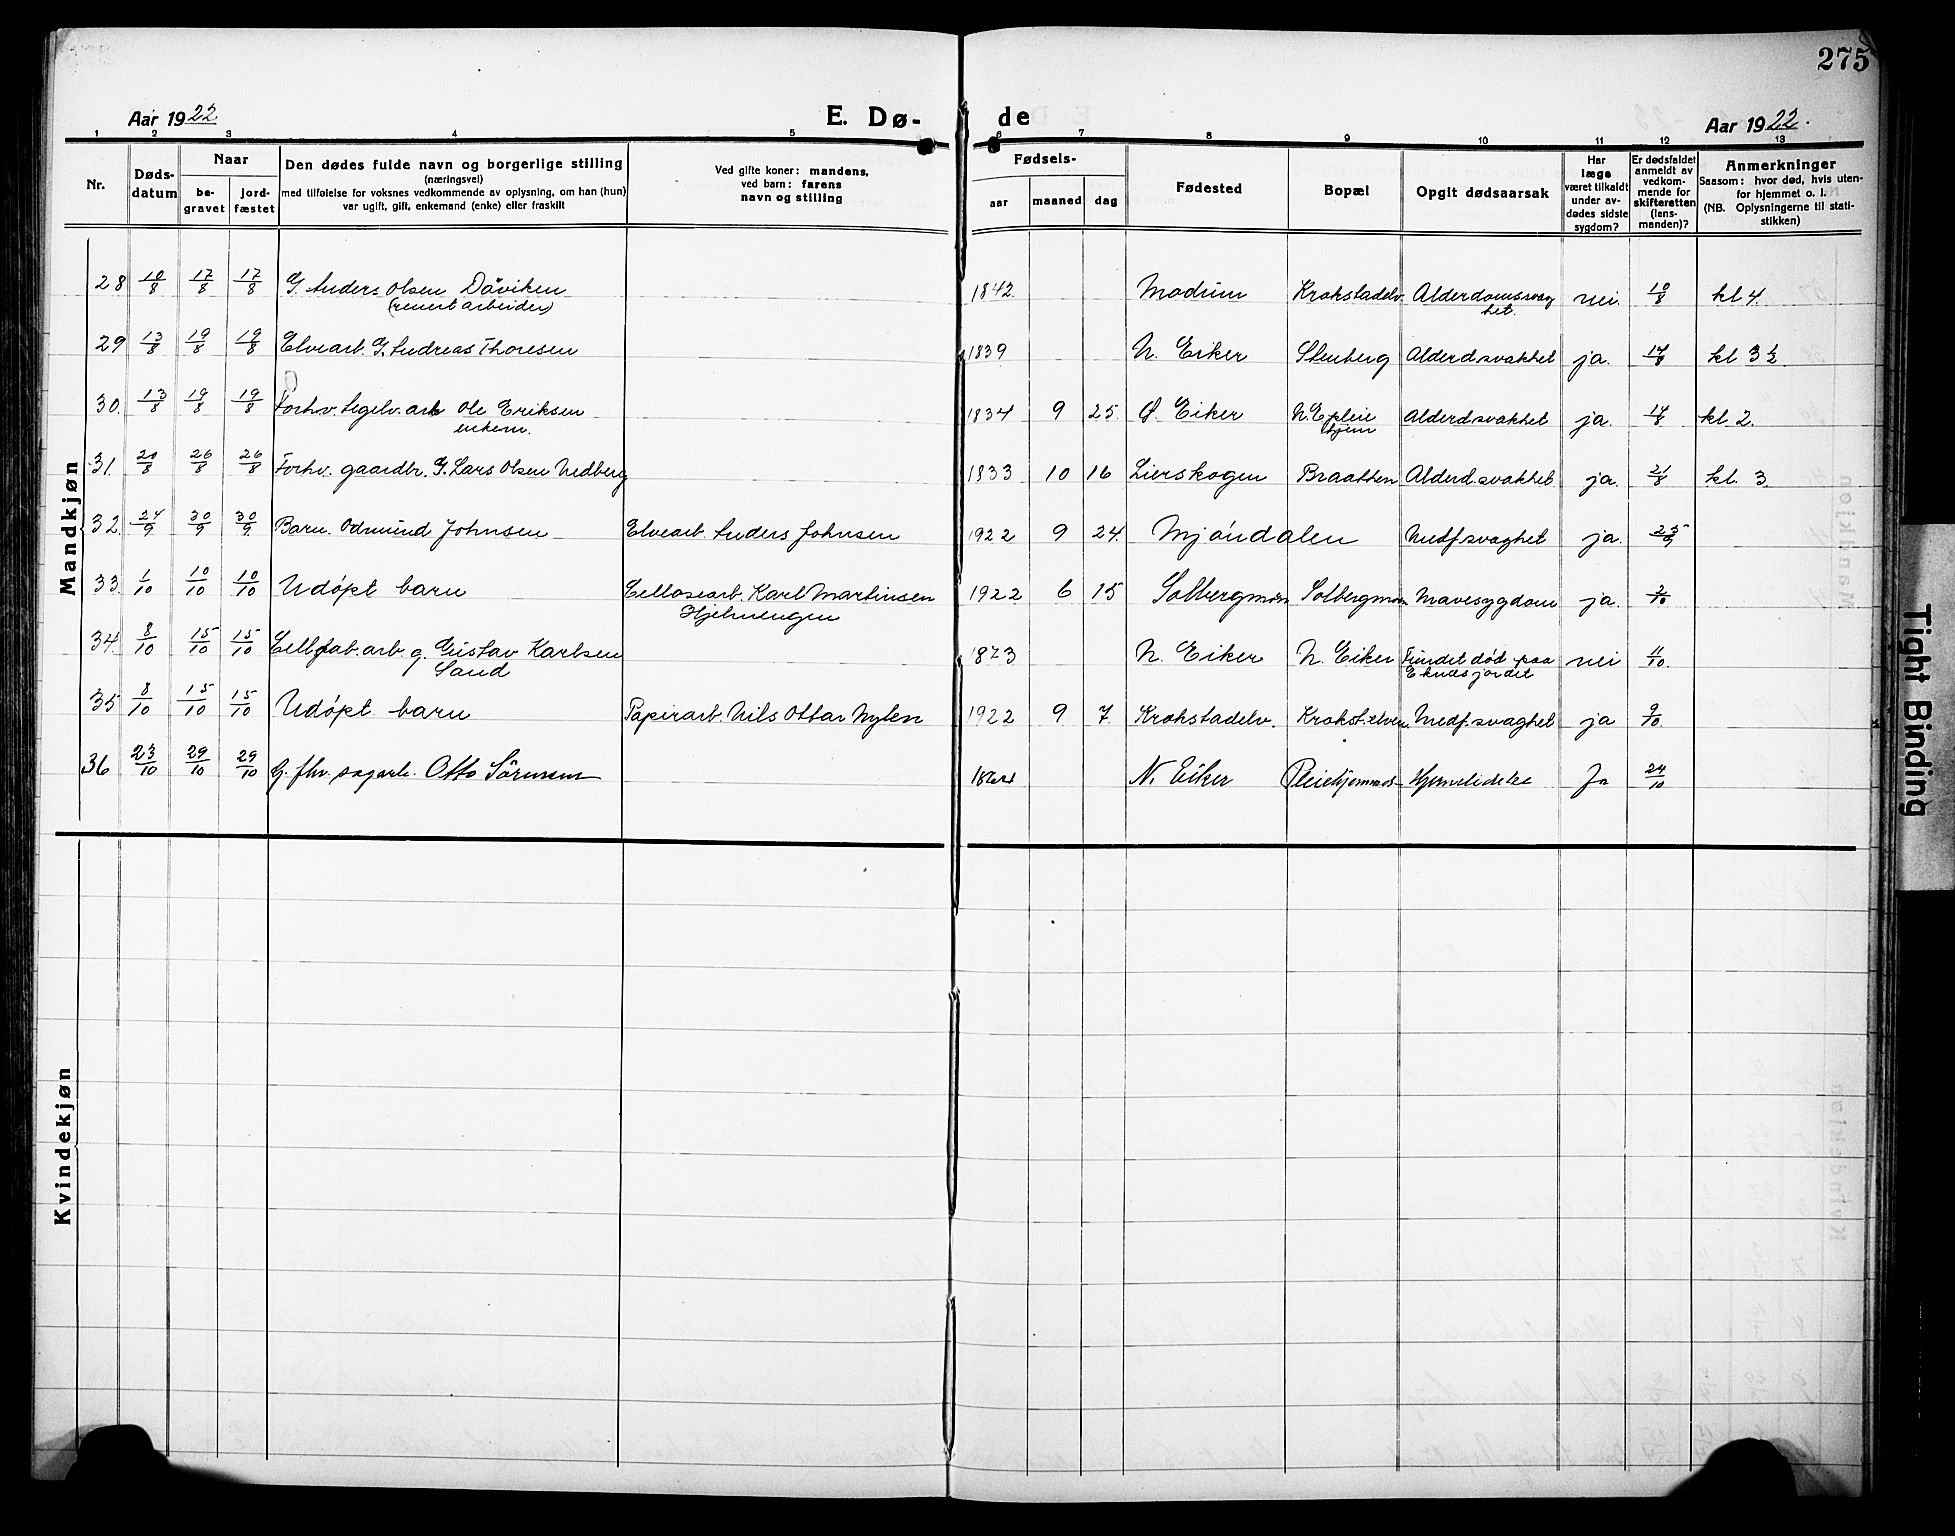 275
Aar 1922 E. Dø- de Aar 1922.
1 2 3 4 5 6 7 8 9 10 11 12 13
Nr. Døds-datum Naar be-gravet jord-fæstet Den dødes fulde navn og borgerlige stilling (næringsvei) med tilføielse for voksnes vedkommende av oplysning, om han (hun) var ugift, gift, enkemand (enke) eller fraskilt Ved gifte koner: mandens, ved barn: farens navn og stilling Fødsels- aar maaned dag Fødested Bopæl Opgit dødsaarsak Har læge været tilkaldt under av-dødes sidste sygdom? Er dødsfaldet anmeldt av vedkom-mende for skifteretten (lens-manden)? Anmerkninger Saasom: hvor død, hvis uten-for hjemmet o. l. (NB. Oplysningerne til stati-stikken)
Mandkjøn
28 10/8 17/8 17/8 G. Anders Olsen Dåviken 1842. Modum Krokstadelv. Alderdomssvag nei. 10/8 kl 4.
het.
29 13/8 19/8 19/8 Elvearb. G. Andreas Thoresen 1839 N. Eiker Stenberg Alderd.svakhet ja. 14/8 kl 3 1/2
30. 13/8 19/8 19/8 Forhv. arb Ole Eriksen 1834 9 25. Ø. Eiker N. E pleie Alderd.svakhet ja. 14/8 kl 2.
enkem. hjem
31. 20/8 26/8 26/8 Forhv. gaardbr. G. Lars Olsen Vedberg 1833 10 16 Lierskogen Braatten Alderd.svakhet ja. 21/8 kl. 3
32. 24/9 30/9 30/9. Barn. Odmund Johnsen Elvearb. Anders Johnsen 1922 9 24. Mjöndalen Medf.svaghet ja. 25/9
33. 1/10 10/10 10/10 Udøpt barn Cellosearb. Karl Martinsen 1922 6 15 Solbergmoen Solbergmoen Mavesygdom ja. 2/10
Hjelmengen
34. 8/10 15/10 15/10 Cell.fab.arb. g. Gustav Karlsen 1873 N. Eiker N. Eiker Fundet død paa nei 11/10.
Sand Eknesjordet
35 8/10 15/10 15/10 Udøpt barn Papirarb. Nils Ottar Nylen 1922 9 7. Krokstadelv. Krokst.elven Medf.svaghet ja 9/10.
36 23/10 29/10 29/10 G. fhv. sagarb. Otto Sörensen N. Eiker Hjertelidelse Ja 24/10
Kvindekjøn
Tight Binding